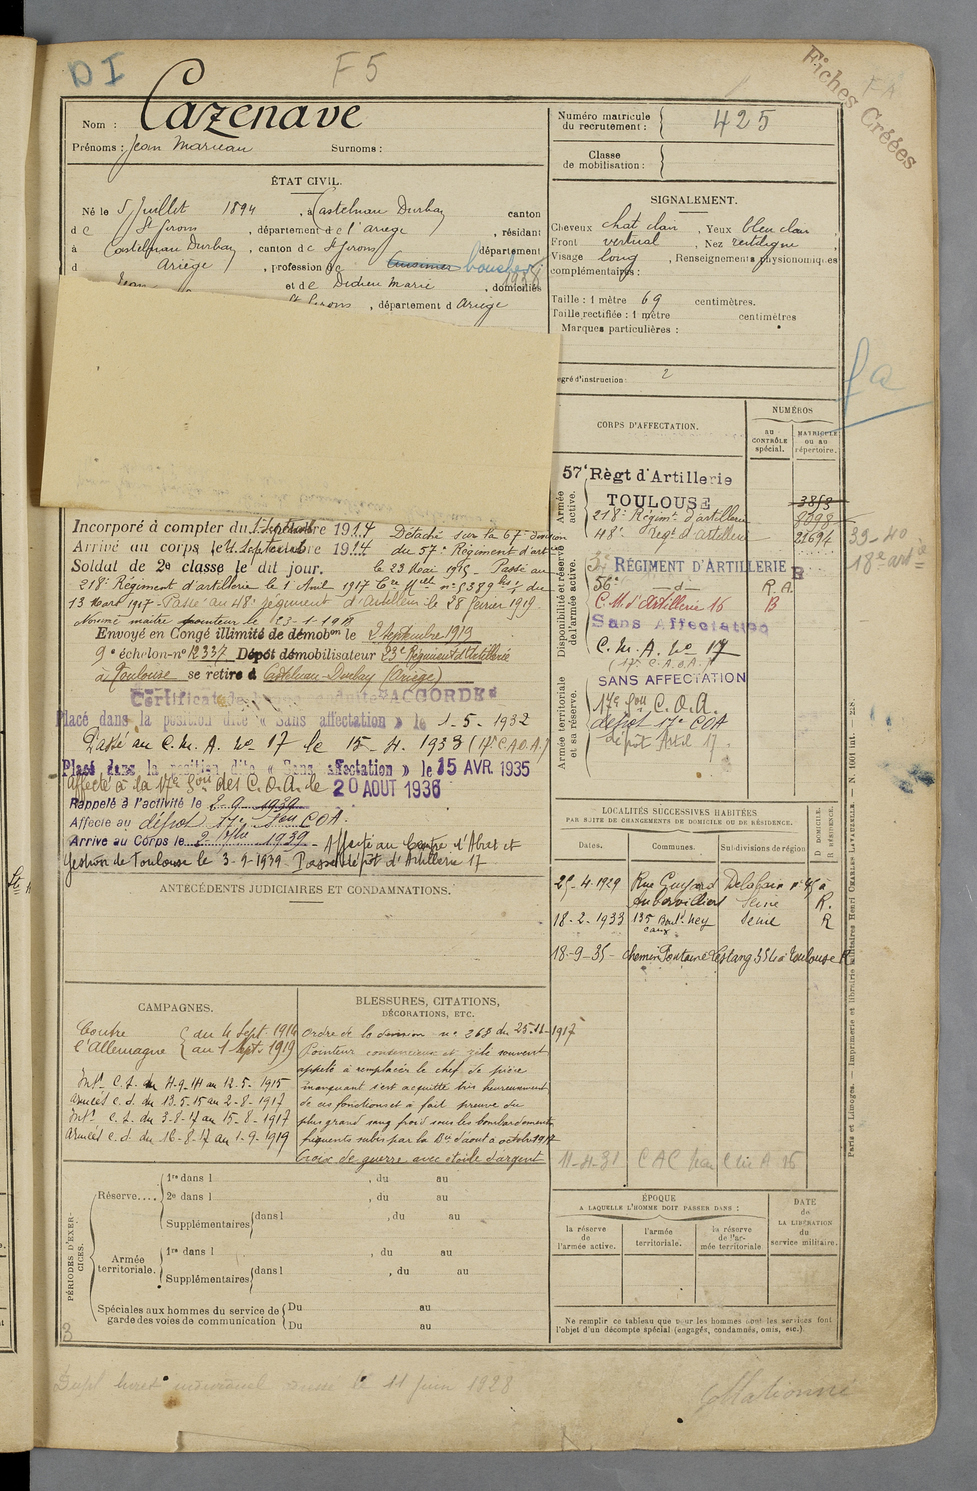 DI
F 5
Fiches Créées
Nom : Cazenave
Prénoms : Jean Surnoms :
Numéro matricule du recrutement : 425
Classe de mobilisation :
ÉTAT CIVIL.
Né le 5 Juillet 1894, à Castelnau Durban canton
de St Girons, département de l'Ariège, résidant
à Castelnau Durban, canton de St Girons département
d Ariège, profession de boucher
et de Dedieu Marie, domiciliés
St Girons, département d Ariège
SIGNALEMENT.
Cheveux chat clair, Yeux bleu clair
Front vertical, Nez rectiligne
Visage long, Renseignements physionomiques
complémentaires :
Taille : 1 mètre 69 centimètres.
Taille rectifiée : 1 mètre centimètres
Marques particulières :
egré d'instruction : 2
fa
CORPS D'AFFECTATION.
NUMÉROS
au CONTRÔLE spécial.
MATRICULE ou au répertoire.
Armée active.
57e Règt d'Artillerie
TOULOUSE
3858
218e Régimt d'artillerie
48e Regt d'artillerie 21694
39-40
Disponibilité et réserve de l'armée active.
RÉGIMENT D'ARTILLERIE R
56e d R.A.
C.M d'Artillerie 16 B
Sans Affectation
C.M.A. No 17
(17e C.A.O.A.)
SANS AFFECTATION
Armée territoriale et sa réserve.
17e Son C.O.A.
dépot 17e COA
dépôt Artil 17.
Incorporé à compter du 1 septembre 1914
Arrivé au corps le 4 septembre 1914
Soldat de 2e classe le dit jour.
Détaché sur la 67e division
du 57e Régiment d'artie
le 23 Mai 1915 - Passé au
218e Régiment d'artillerie le 1 Avril 1917 du
13 Mars 1917 - Passé au 48e régiment d'Artillerie le 28 février 1919.
Nommé maître pointeur le
Envoyé en Congé illimité de démobon le 2 septembre 1919
9e échelon - no 12337 Dépôt démobilisateur 23e Régiment d'Artillerie
à Toulouse se retire à Castelnau-Durban (Ariège)
Certificat de bonne conduite "ACCORDÉ"
Placé dans la position dite « Sans affectation » le 1-5-1932
Passé au C.M.A. No 17 le 15-4-1933 (17e C.A.O.A.)
Placé dans la position dite « Sans affectation » le 15 AVR 1935
Affecté à la 17e Son des C.O.A. le 20 AOUT 1936
Rappelé à l'activité le 2-9-1939
Affecté au dépôt 17e Son COA.
Arrivé au Corps le 2 7bre 1939 - Affecté au Centre d'Abat et
Gestion de Toulouse le 3-9-1939 Passé dépôt d'Artillerie 17
ANTÉCÉDENTS JUDICIAIRES ET CONDAMNATIONS.
LOCALITÉS SUCCESSIVES HABITÉES
PAR SUITE DE CHANGEMENTS DE DOMICILE OU DE RÉSIDENCE.
Dates. Communes. Subdivisions de région D DOMICILE. R RÉSIDENCE.
29-4-1929 Rue Guyard Delalain n° 45 à
Aubervilliers Seine R.
18-2-1933 135 Boulr Ney Seine R
18-9-35 chemin Fontaine Lestang à Toulouse R
11-4-31 C A C
CAMPAGNES.
Contre l'Allemagne { du 4 Sept. 1914
au 1 Sept. 1919
Intr C.S. du 4-9-14 au 12-5-1915
Armées c.d. du 13-5-15 au 2-8-1917
Intr C.S. du 3-8-17 au 15-8-1917
Armées c.d. du 16-8-17 au 1-9-1919
BLESSURES, CITATIONS,
DÉCORATIONS, ETC.
Ordre de la division n° 268 du 25-11-1917
Pointeur consciencieux et zélé souvent
appelé à remplacer le chef de pièce
manquant s'est acquitté très heureusement
de ces fonctions et a fait preuve du
plus grand sang froid sous les bombardements
fréquents subis par la Don d'aout à octobre 1917
Croix de guerre avec étoile d'argent
PÉRIODES D'EXERCICES.
Réserve.... 1re dans l , du au
2e dans l , du au
Supplémentaires dans l , du au
Armée territoriale. 1re dans l , du au
Supplémentaires dans l , du au
Spéciales aux hommes du service de garde des voies de communication Du au
Du au
ÉPOQUE
A LAQUELLE L'HOMME DOIT PASSER DANS :
la réserve de l'armée active.
l'armée territoriale.
la réserve de l'armée territoriale
DATE de LA LIBÉRATION du service militaire.
Ne remplir ce tableau que pour les hommes dont les services font
l'objet d'un décompte spécial (engagés, condamnés, omis, etc.)
Paris et Limoges. — Imprimerie et librairie militaires Henri CHARLES LAVAUZELLE. — N. 1001 int. — 228.
3
Dupl livret individuel le 11 Juin 1928
Collationné